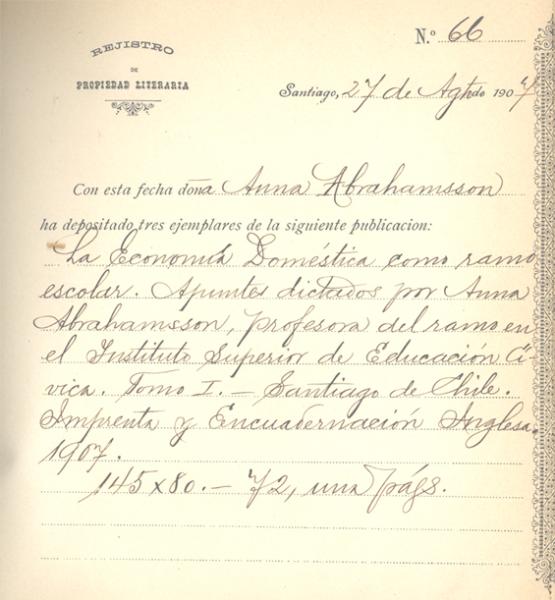 REJISTRO
DE
PROPIEDAD LITERARIA
N.º 66
Santiago, 27 de Agto de 1907
Con esta fecha dona Anna Abrahamsson
ha depositado tres ejemplares de la siguiente publicacion:
La Economía Doméstica como ramo
escolar. Apuntes dictados por Anna
Abrahamsson, profesora del ramo en
el Instituto Superior de Educación Cí-
vica. Tomo I. — Santiago de Chile.
Imprenta y Encuadernación Inglesa.
1907.
145 x 80. — 72, una págs.